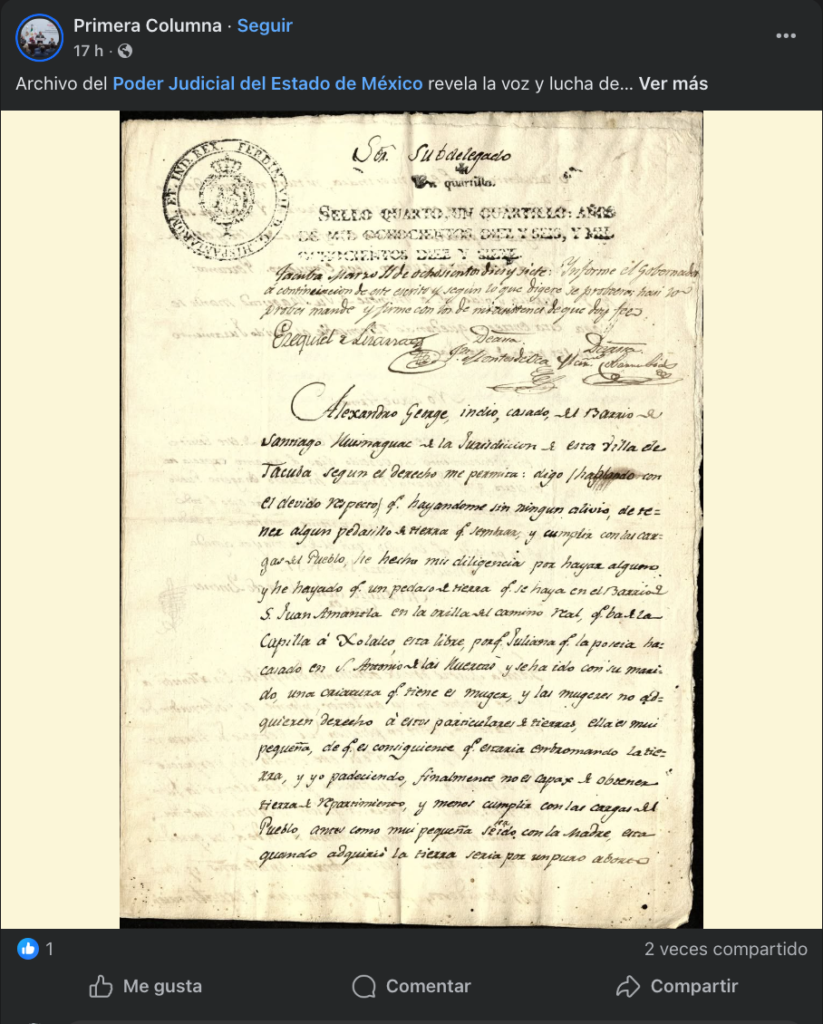 Primera Columna · Seguir
17 h ·
Archivo del Poder Judicial del Estado de México revela la voz y lucha de... Ver más
FERDIN. VII. D. G. HISPANIARUM ET. IND. REX.
Sör. Subdelegado
Un quartillo.
SELLO QUARTO, UN QUARTILLO: AÑOS
DE MIL OCHOCIENTOS DIEZ Y SEIS, Y MIL
OCHOCIENTOS DIEZ Y SIETE.
Tacuba Marzo 11 de ochosientos dies y siete: Informe el Gobernador
a continuacion de este escrito y segun lo que digere se probeera hasi lo
probei mande y firmé con los de mi asistencia de que doy fee.
Ezequiel Lizarraga
Deassa Deassa
Alexandro George, indio, casado, del Barrio de
Santiago Huimaguac de la Jurisdiccion de esta Villa de
Tacuba segun el derecho me permita: digo (hablando con
el devido respecto) q.e hayandome sin ningun alivio, de te=
ner algun pedasillo de tierra q.e sembrar, y cumplir con las car=
gas del Pueblo, he hecho mis diligencia por hayar alguno
y he hayado q.e un pedaso de tierra q.e se haya en el Barrio de
S. Juan Amantla en la orilla del camino real, q.e ba de la
Capilla á Xolalco, esta libre, porq.e Juliana q.e la poseia ha
casado en S. Antonio de las Huertas y se ha ido con su mari-
do, una criatura q.e tiene es muger, y las mugeres no ad=
quieren derecho á estos particulares de tierras, ella es mui
pequeña, de q.e es consiguiente q.e estaria embromando la tie=
rra, y yo padeciendo, finalmente no es capax de obtener
tierra de repartimiento, y menos cumplir con las cargas del
Pueblo, antes como mui pequeña se ha ido con la Madre, esta
quando adquirió la tierra seria por un puro
1
2 veces compartido
Me gusta
Comentar
Compartir